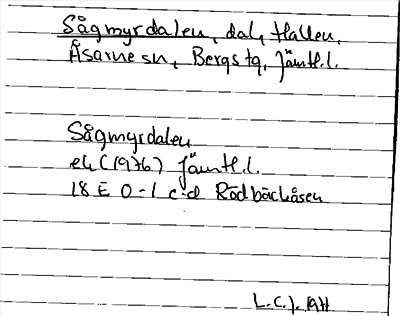 Sågmyrdalen, dal, Hallen,
Åsarne sn, Bergs tg, Jämtl. l.
Sågmyrdalen
ek (1976) Jämtl. l.
18 E 0-1 c-d Rödbäckåsen
L.C.J. 1977